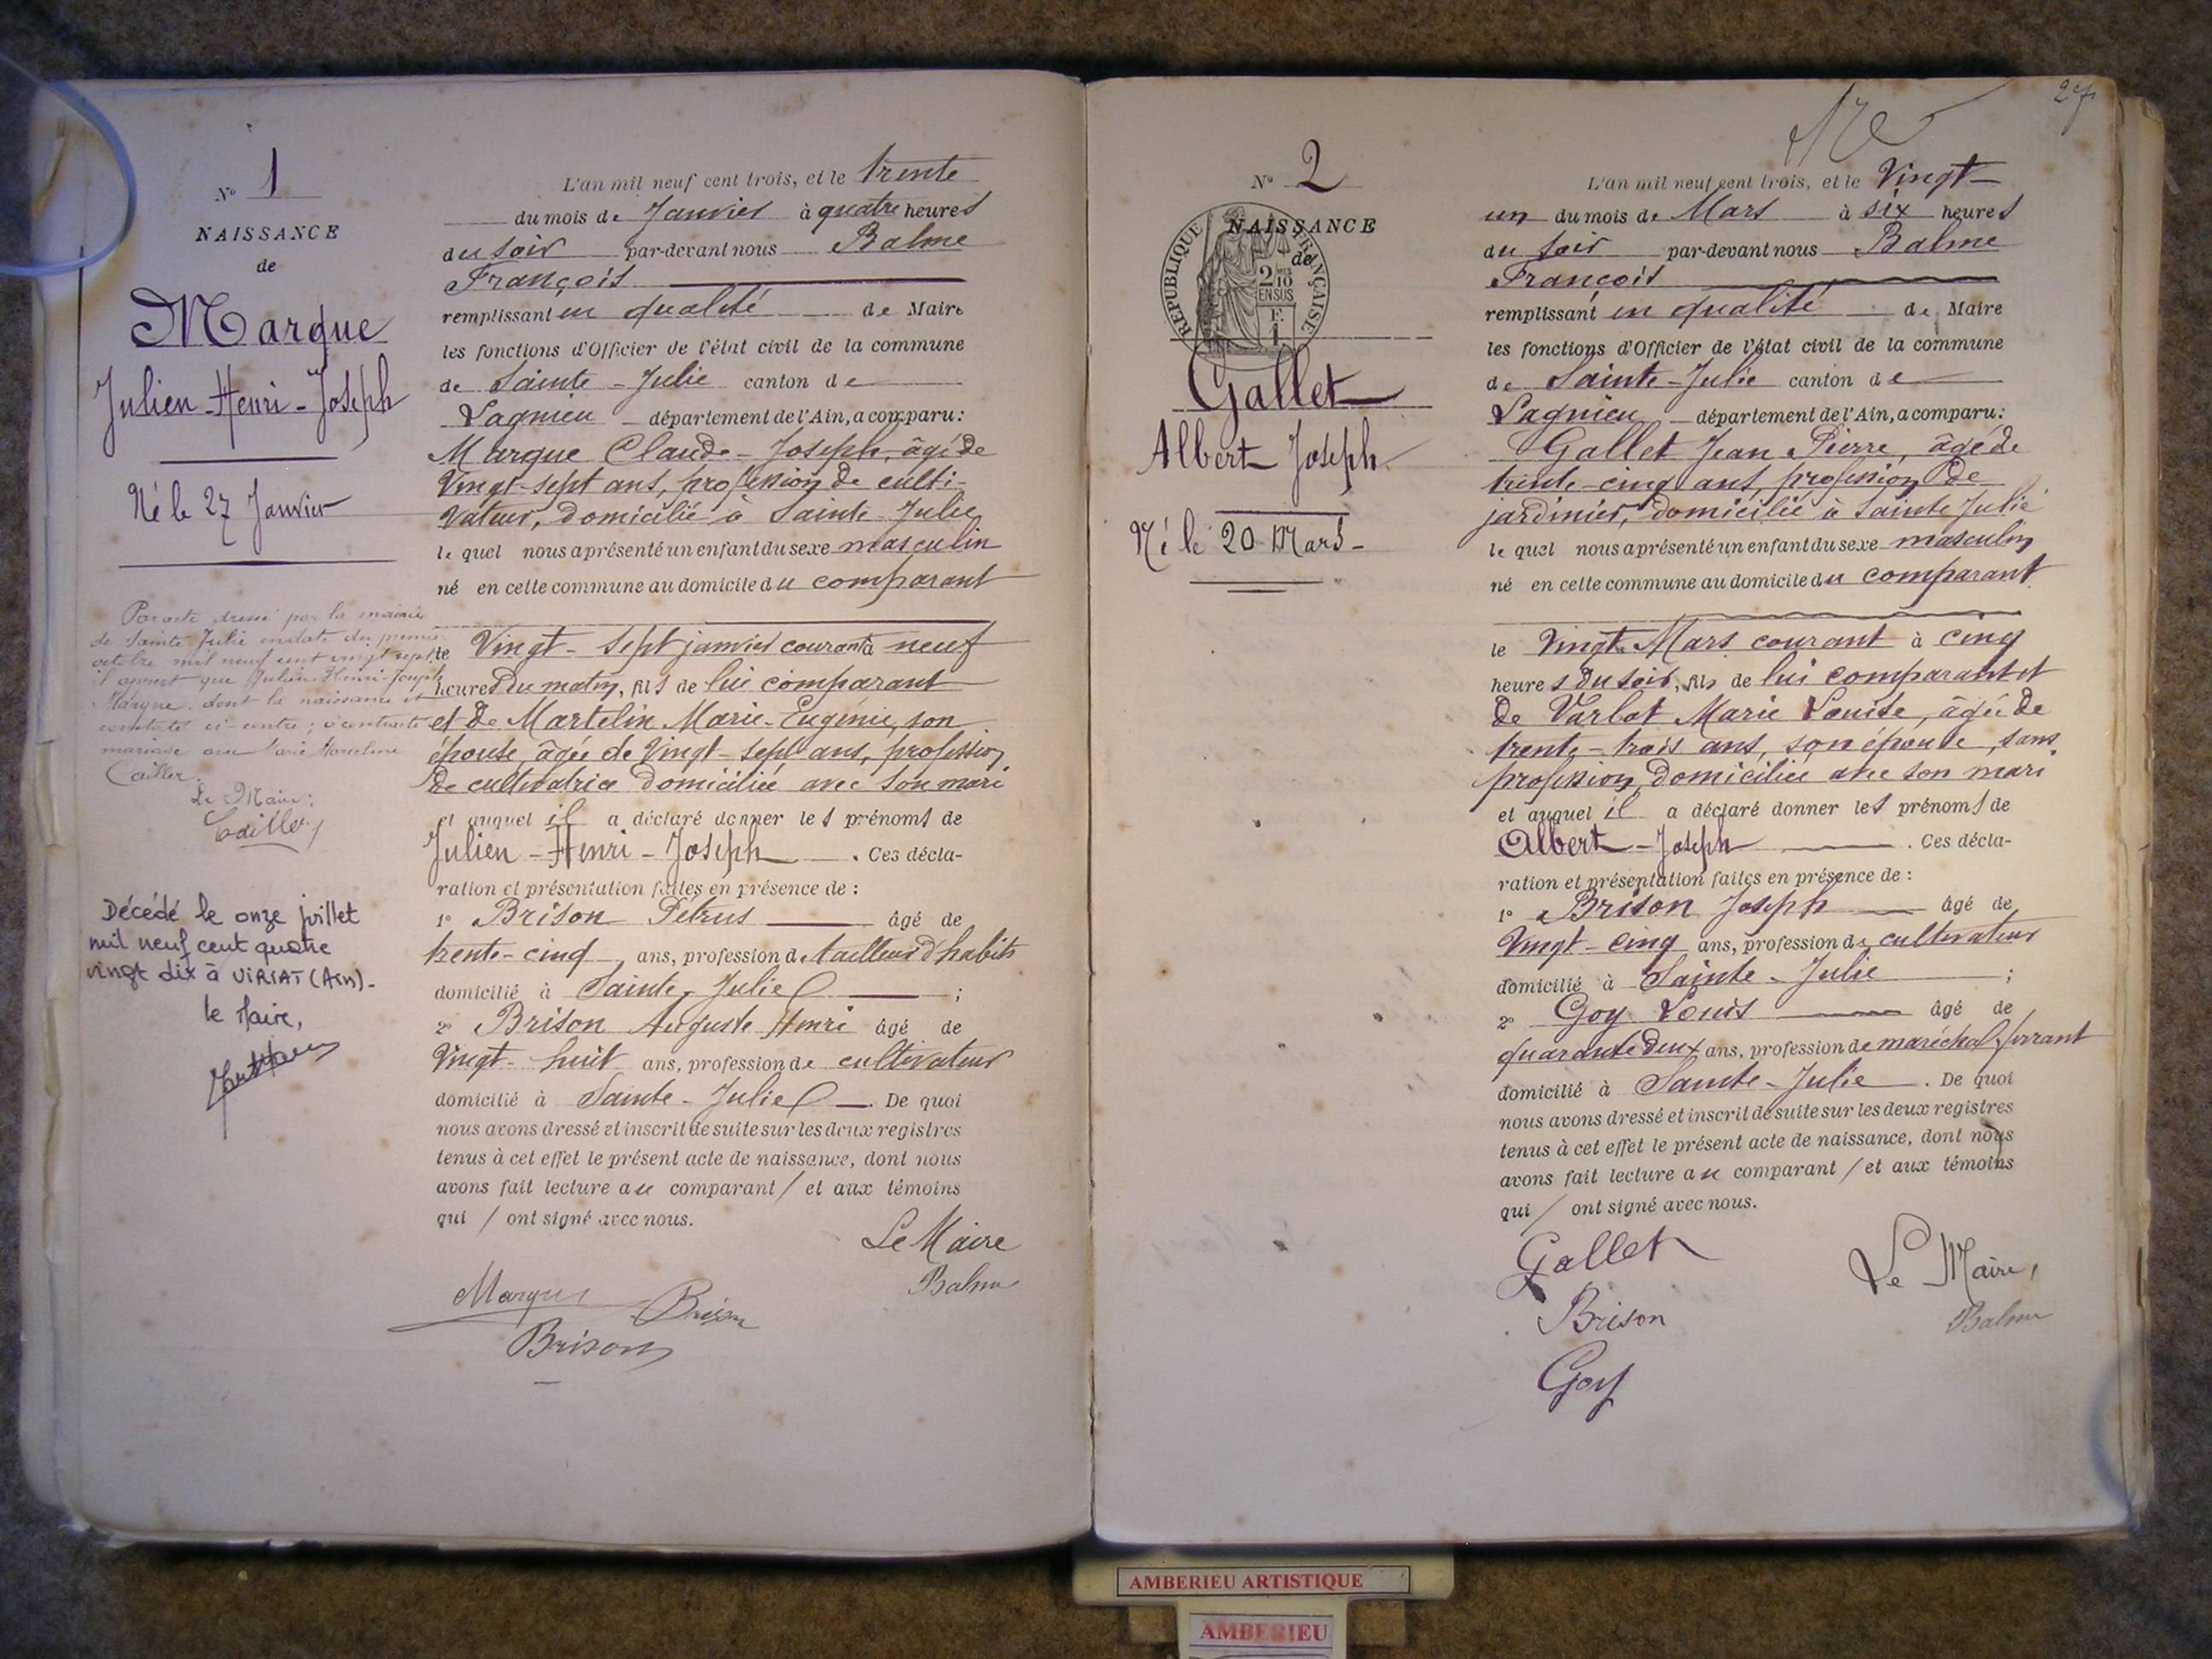 N° 1
NAISSANCE
de
Marque
Julien-Henri-Joseph
Né le 27 Janvier
Par acte dressé par la mairie
de Sainte Julie en date du premier
octobre mil neuf cent vingt sept
il appert que Julien-Henri-Joseph
Marque, dont la naissance est
constatée ci-contre; a contracté
mariage avec Marie Marceline
Cailler.
Le Maire:
Cailler
Décédé le onze juillet
mil neuf cent quatre
vingt dix à VIRIAT (Ain)-
le Maire,
L'an mil neuf cent trois, et le trente
du mois de Janvier à quatre heures
du soir par-devant nous Balme
François
remplissant en qualité de Maire
les fonctions d'Officier de l'état civil de la commune
de Sainte-Julie canton de
Lagnieu département de l'Ain, a comparu:
Marque Claude-Joseph, âgé de
Vingt-sept ans, profession de culti-
vateur, domicilié à Sainte Julie
le quel nous a présenté un enfant du sexe masculin
né en cette commune au domicile du comparant
le Vingt-sept janvier courant à neuf
heures du matin, fils de lui comparant
et de Martelin Marie-Eugénie, son
épouse, âgée de Vingt-sept ans, profession
de cultivatrice domiciliée avec son mari
et auquel il a déclaré donner les prénoms de
Julien-Henri-Joseph. Ces décla-
ration et présentation faites en présence de:
1° Brison Pétrus âgé de
trente-cinq ans, profession de tailleur d'habits
domicilié à Sainte-Julie;
2° Brison Auguste Henri âgé de
Vingt-huit ans, profession de cultivateur
domicilié à Sainte-Julie. De quoi
nous avons dressé et inscrit de suite sur les deux registres
tenus à cet effet le présent acte de naissance, dont nous
avons fait lecture au comparant / et aux témoins
qui / ont signé avec nous.
Le Maire
Balme
Marque Brison
Brison
27
N° 2
NAISSANCE
de
RÉPUBLIQUE FRANÇAISE
2/10
EN SUS
F.
1
Gallet
Albert Joseph
Né le 20 Mars-
L'an mil neuf cent trois, et le Vingt-
un du mois de Mars à six heures
du soir par-devant nous Balme
François
remplissant en qualité de Maire
les fonctions d'Officier de l'état civil de la commune
de Sainte-Julie canton de
Lagnieu département de l'Ain, a comparu:
Gallet Jean Pierre, âgé de
trente-cinq ans, profession de
jardinier, domicilié à Sainte Julie
le quel nous a présenté un enfant du sexe masculin
né en cette commune au domicile du comparant
le Vingt Mars courant à cinq
heures du soir, fils de lui comparant et
de Varlot Marie Louise, âgée de
trente-trois ans, son épouse, sans
profession, domiciliée avec son mari
et auquel il a déclaré donner les prénoms de
Albert-Joseph. Ces décla-
ration et présentation faites en présence de:
1° Brison Joseph âgé de
Vingt-cinq ans, profession de cultivateur
domicilié à Sainte-Julie;
2° Goy Louis âgé de
quarante deux ans, profession de maréchal-ferrant
domicilié à Sainte-Julie. De quoi
nous avons dressé et inscrit de suite sur les deux registres
tenus à cet effet le présent acte de naissance, dont nous
avons fait lecture au comparant / et aux témoins
qui / ont signé avec nous.
Gallet
Le Maire,
Brison
Balme
Goy
AMBERIEU ARTISTIQUE
AMBERIEU